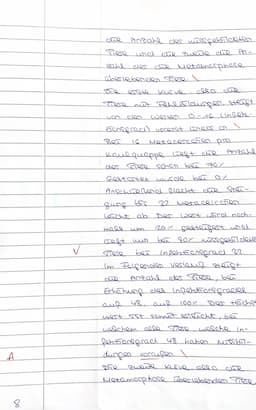 die Anzahl der missgebildeten
Tiere und die zweite die An-
zahl der die Metamorphose
überlebenden Tiere.
Die erste Kurve, also die
Tiere mit Fehlbildungen steigt
von den Werten 0-16 (Infek-
tionsgrad) zuerst linear an
Bei 16 Metacercarien pro
Kaulquappe liegt die Anzahl
der Tiere schon bei %
wurde bei 0%
Anschließend flacht die Stei-
gung bis 22 Metacercarien
leicht ab. Der Wert wird noch-
mals um 20% gesteigert und
liegt nun bei 90% missgebildete
Tiere bei Infektionsgrad
V
Im Folgenden Verlauf steigt
die Anzahl der Tiere, bei
Erhöhung des Infektionsgrades
auf 48, auf 100%. Der Höchst-
wert ist somit erreicht, bei
welchem alle Tiere, welche In-
fektionsgrad 48 haben Missbil-
dungen
A
Die zweite Kurve, also die
Metamorphose überlebenden Tiere
8